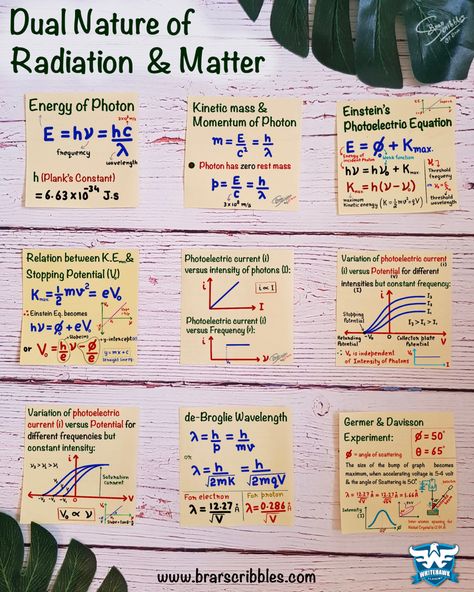 Dual Nature of
Radiation & Matter
Energy of Photon
E = hν = hc/λ
frequency
wavelength
h (Plank's Constant)
= 6.63×10⁻³⁴ J.s
Kinetic mass &
Momentum of Photon
m = E/c² = h/cλ
• Photon has zero rest mass
p = E/c = h/λ
3×10⁸ m/s
Einstein's
Photoelectric Equation
E = ϕ₀ + Kmax.
Energy of
incident Photon
Work function
hν = hν₀ + Kmax
Kmax = h(ν - ν₀)
maximum
Kinetic energy (K=½mv²=eV)
Threshold
frequency
Threshold
wavelength
Relation between K.E. &
Stopping Potential (V₀)
Kmax = ½mv² = eV₀
∴ Einstein Eq. becomes
hν = ϕ₀ + eV₀
or V₀ = h/e ν - ϕ₀/e
y-intercept
y = mx + c
straight line
Photoelectric current (i)
versus intensity of photons (I):
i
i ∝ I
I
Photoelectric current (i)
versus Frequency (ν):
i
ν
Variation of photoelectric current
(i) versus Potential for different
intensities but constant frequency:
I₃
I₂
I₁
I₃ > I₂ > I₁
Stopping
Potential
-V₀
0
V
Retarding
Potential
Collector plate
Potential
∴ V₀ is independent
of Intensity of Photons
Variation of photoelectric
current (i) versus Potential for
different frequencies but
constant intensity:
i
ν₃ > ν₂ > ν₁
Saturation
current
V
V₀ ∝ ν
de-Broglie Wavelength
λ = h/p = h/mv
or
λ = h/√2mK = h/√2mqV
For electron
λ = 12.27/√V Å
For proton
λ = 0.286/√V Å
Germer & Davisson
Experiment:
ϕ = 50°
θ = 65°
ϕ = angle of scattering
The size of the bump of graph becomes
maximum, when accelerating voltage is 54 volt
& the angle of Scattering is 50°
Intensity
www.brarscribbles.com
WHITEHAWK